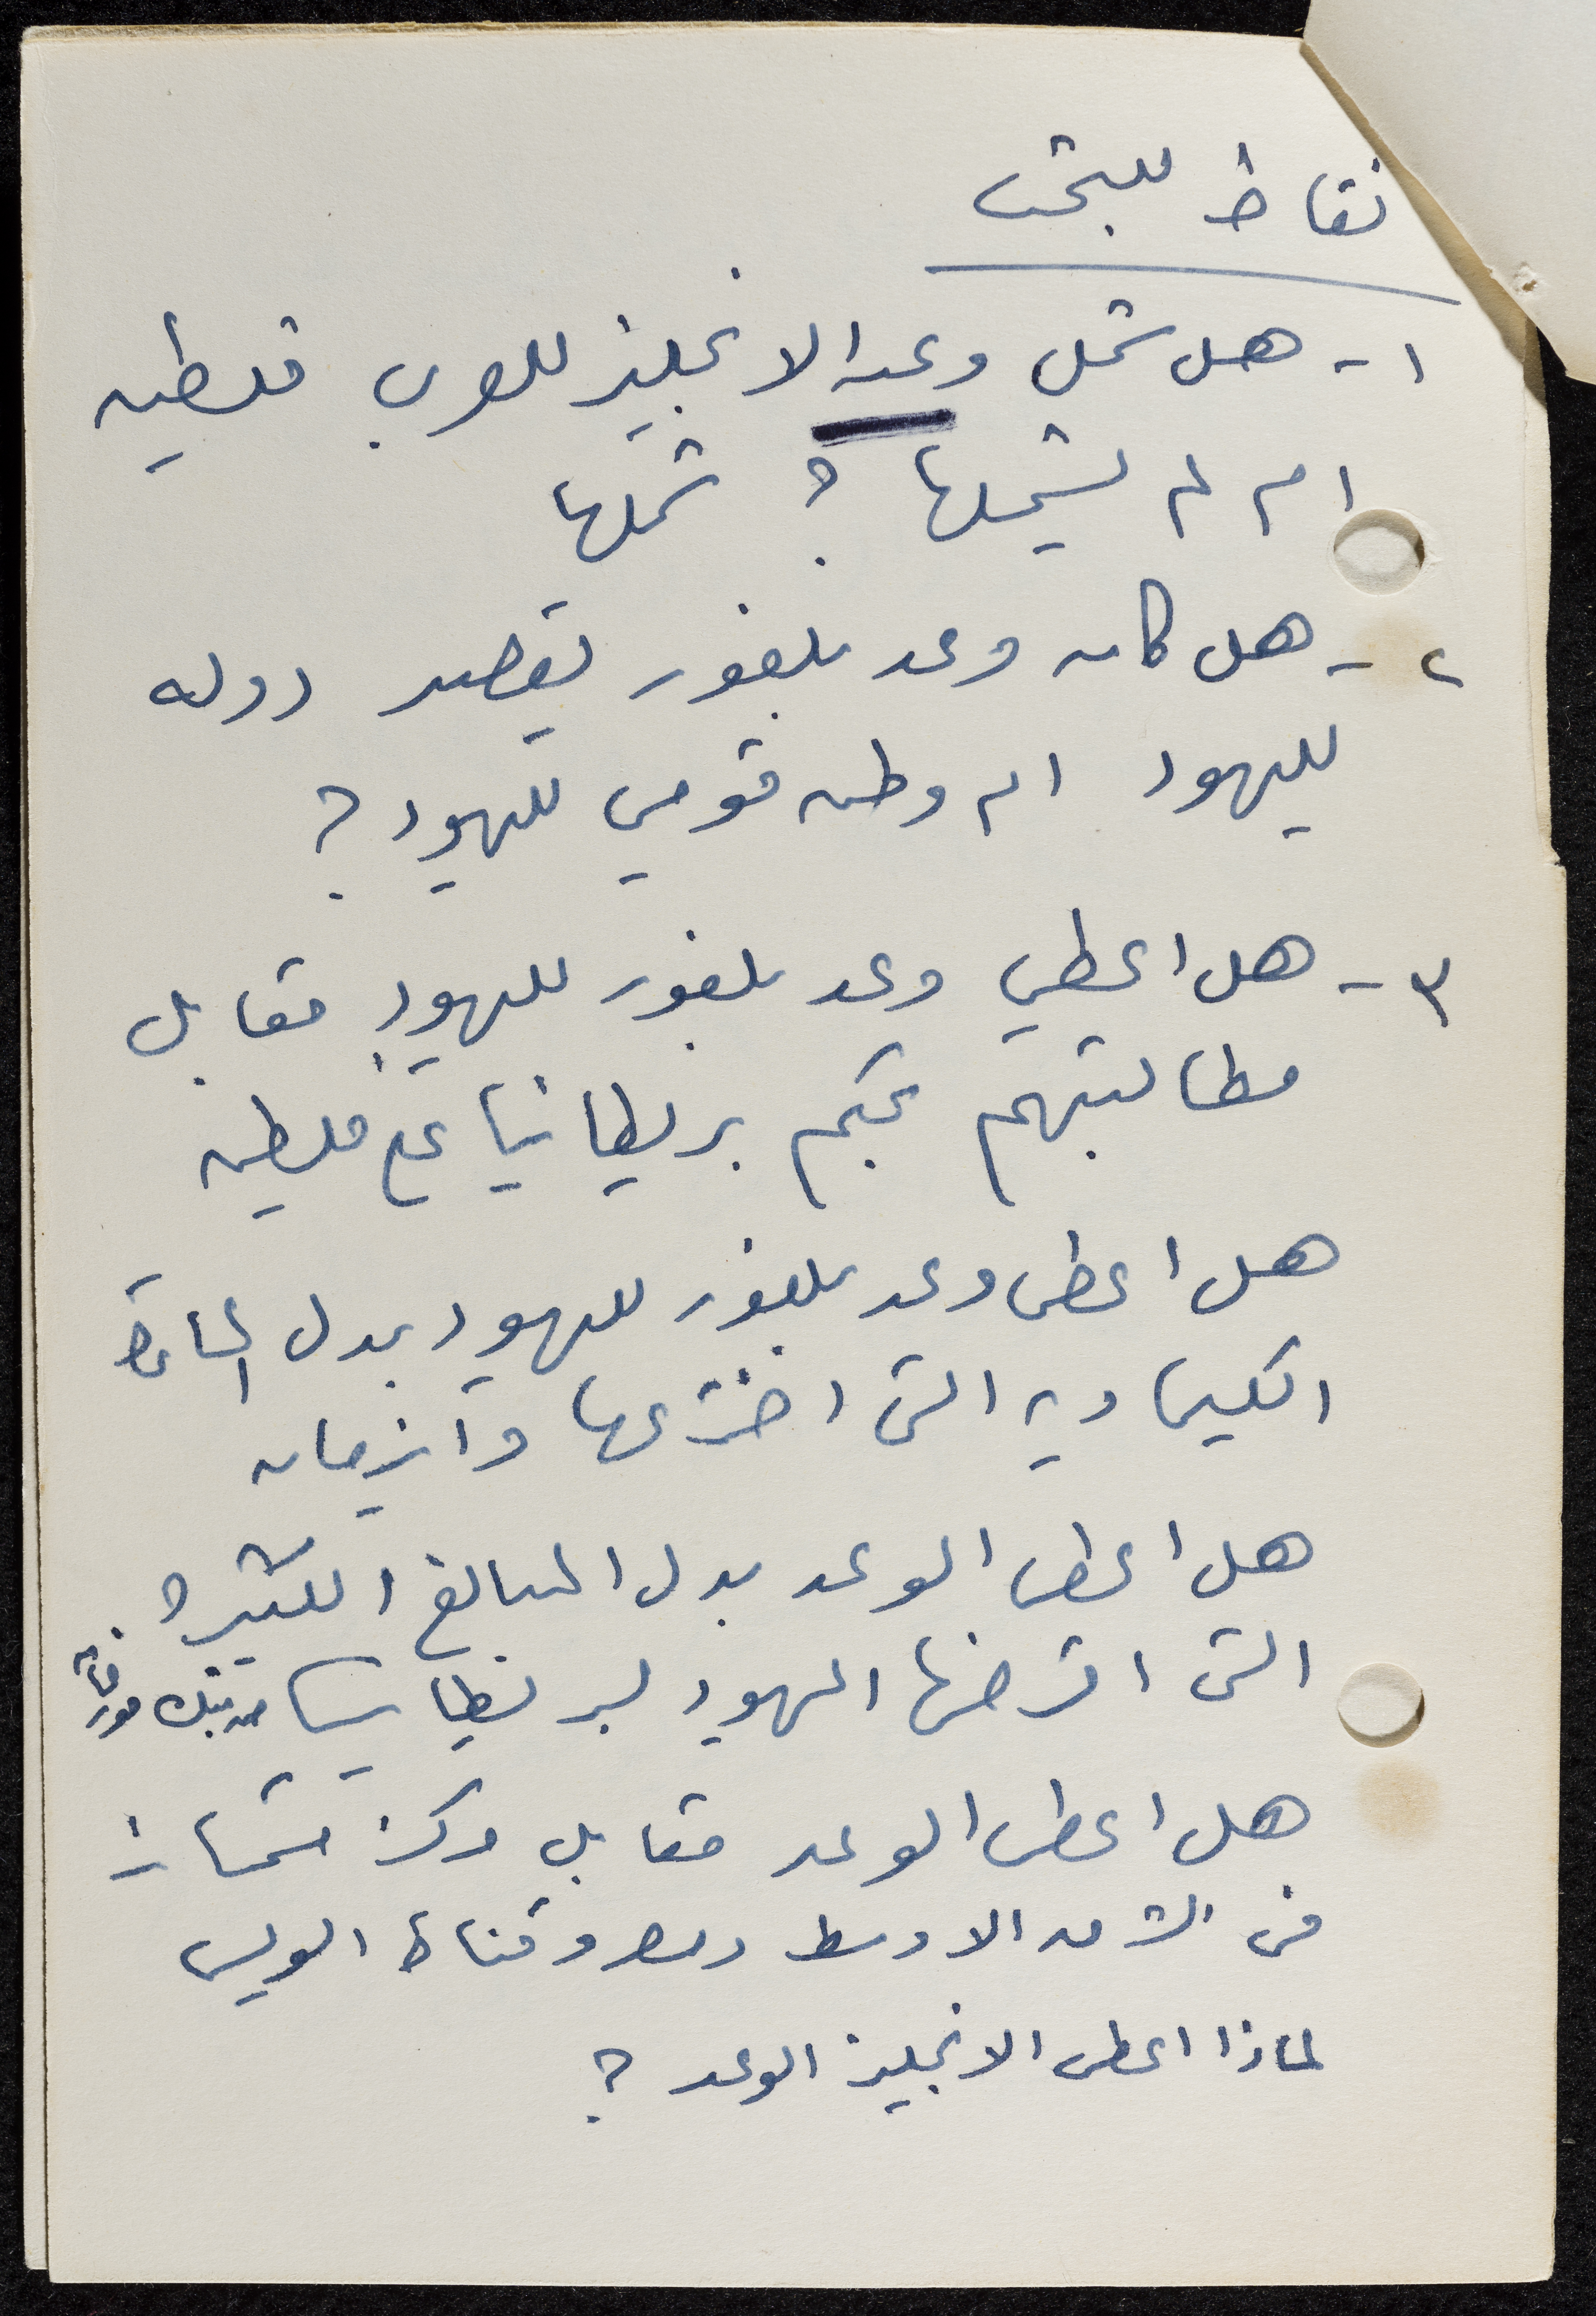 نقاط للبحث
١ - هل شمل وعد الانجليز للعرب فلسطين
ام لم يشملها ؟ شملها
٢ - هل كان وعد بلفور يقصد دوله
لليهود ام وطن قومي لليهود ؟
٣ - هل اعطي وعد بلفور لليهود مقابل
مطالبتهم بحكم بريطانيا على فلسطين
هل اعطى وعد بلفور لليهود بدل
الكيماويه التى اخترعها وايزمان
هل اعطى الوعد بدل المبالغ الكثيرة
التى اقرضها اليهود لبريطانيا من بنك مورغان
هل اعطى الوعد مقابل مركز ممتاز
فى الشرق الاوسط ومصر وقناة السويس
لماذا اعطى الانجليز الوعد ؟